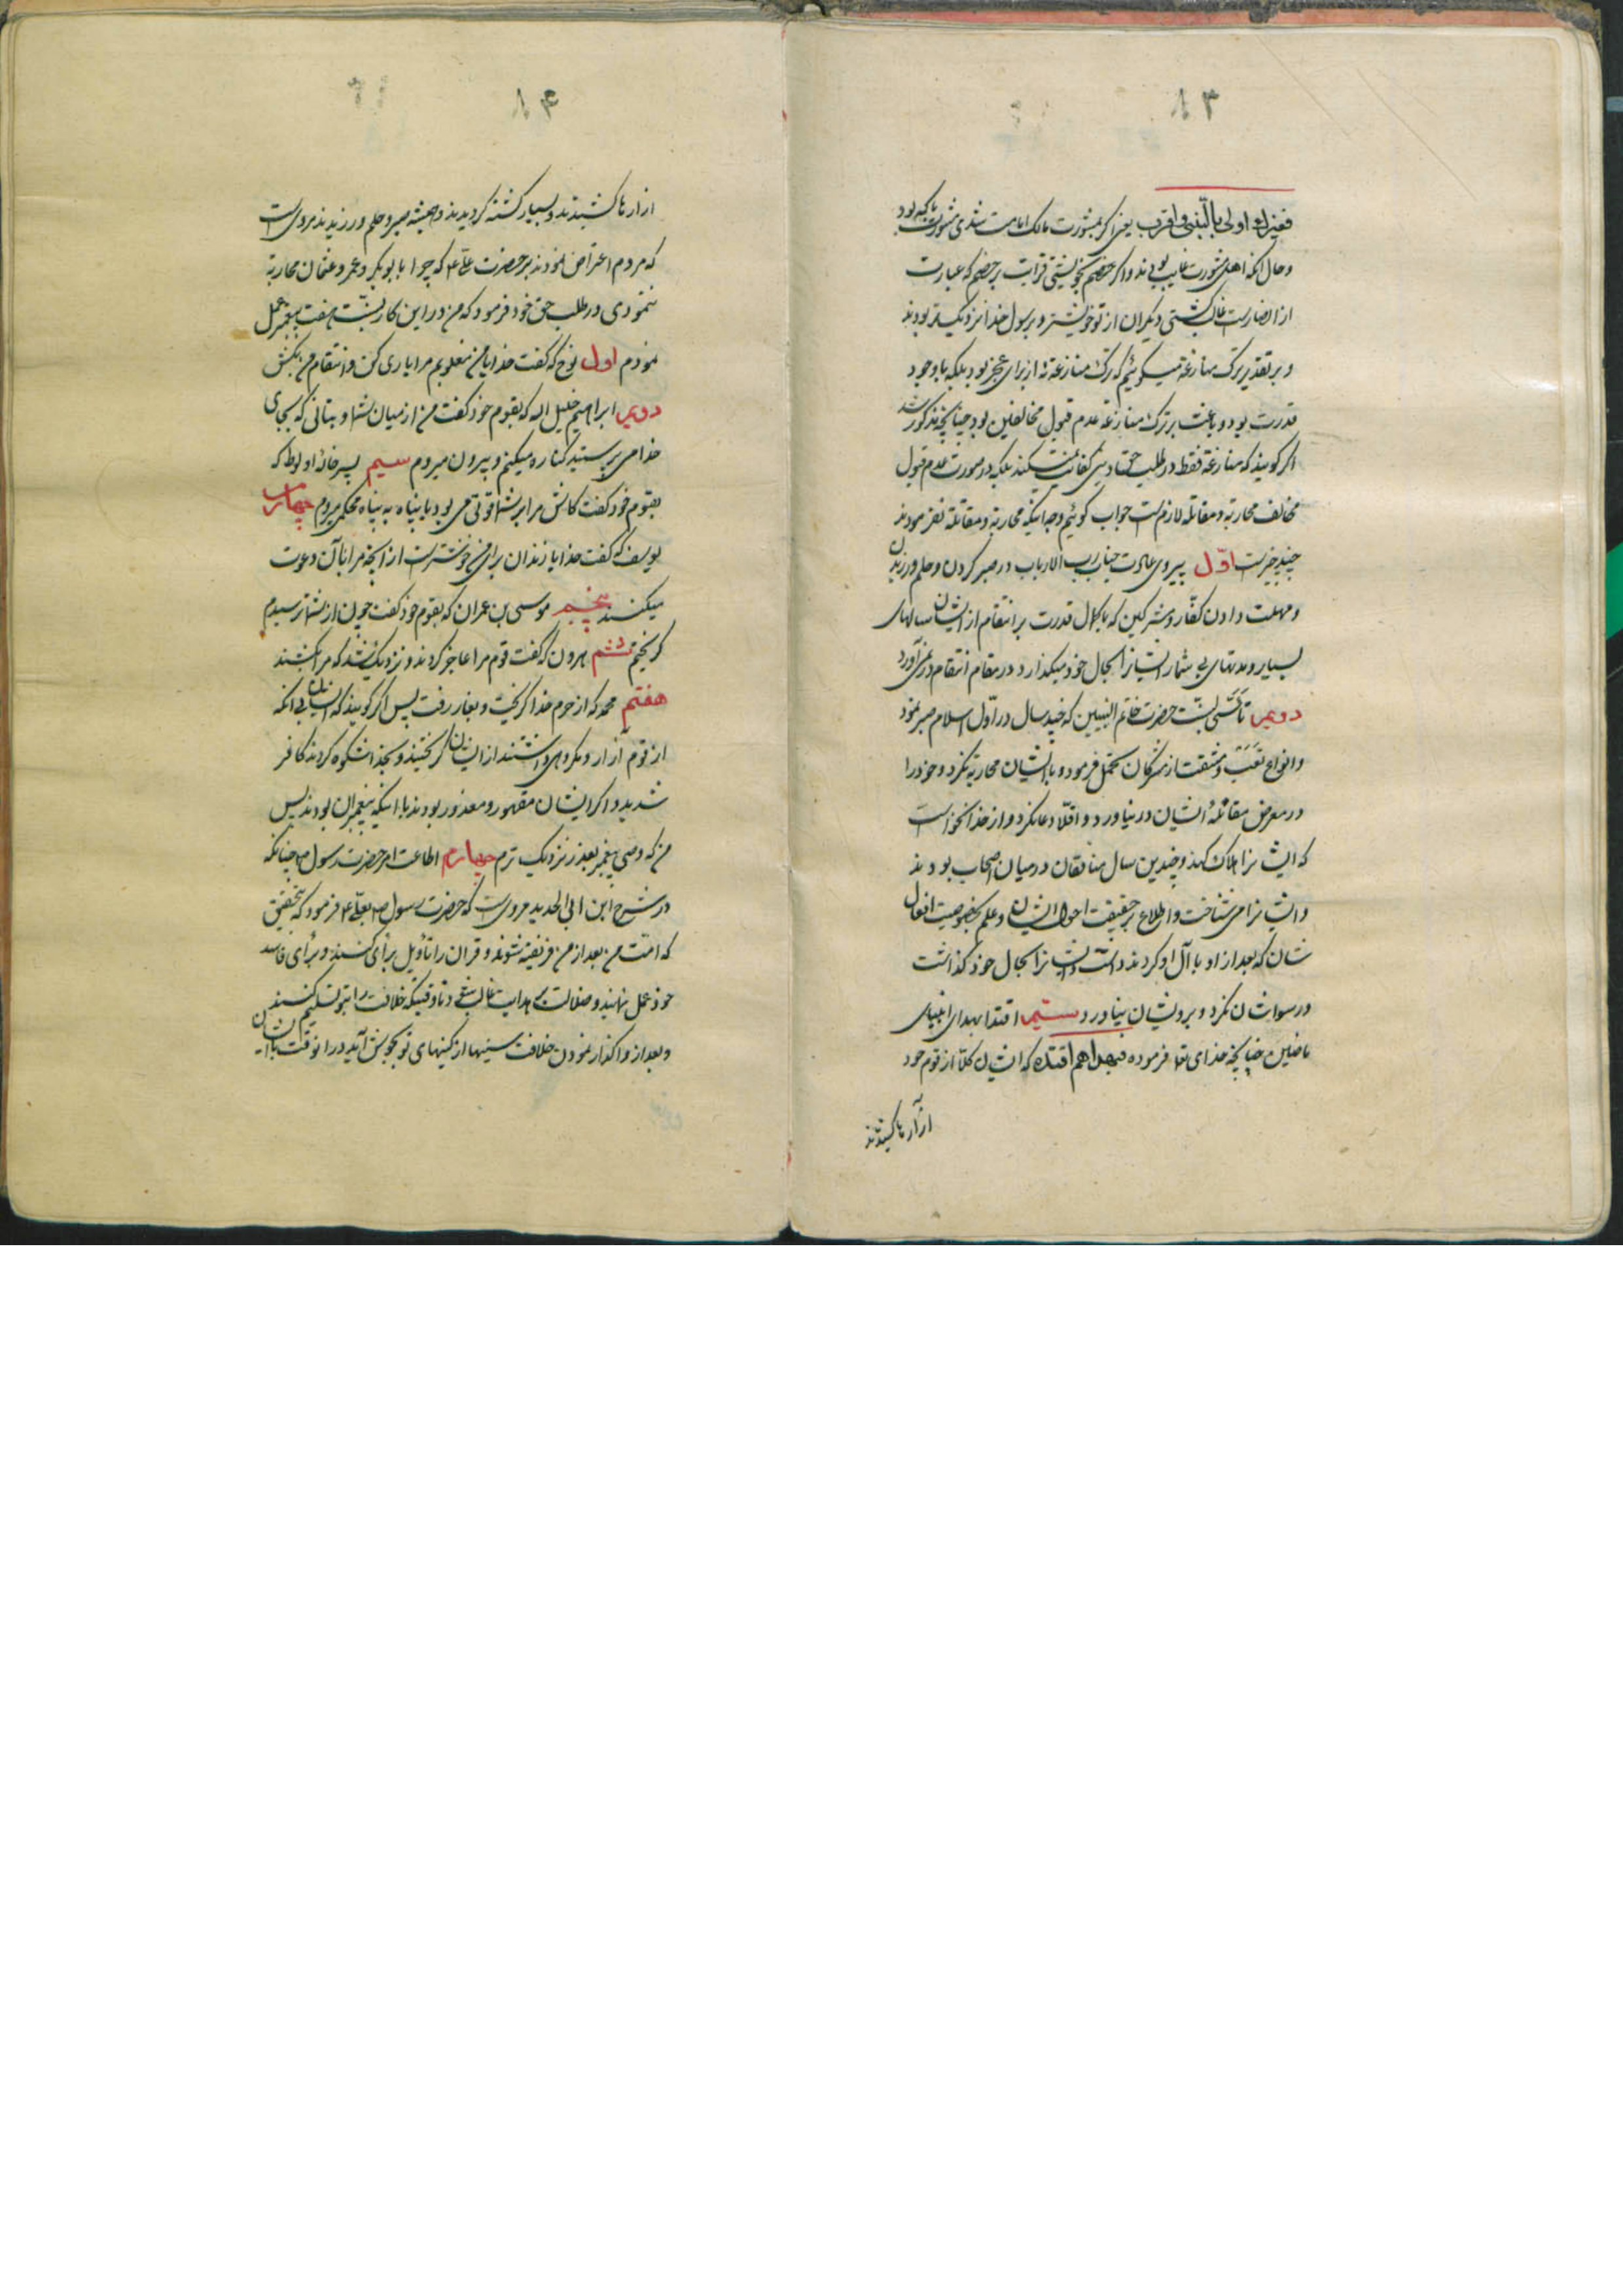 ۱۳
فغیرک اولی بالنبی و اقرب یعنی اگر بمشورت مالک امامت شدی مشورت با که بود
و حال آنکه اهل مشورت غایب بودند و اگر خصم بخویشی و قرابت بر خصم که عبارت
از انصار است غالب گشتی دیگران از تو خویشتر و برسول خدا نزدیکتر بودند
و بر تقدیر ترک منازعه میگوئیم که ترک منازعه نه از برای عجز بود بلکه با وجود
قدرت بود و باعث بر ترک منازعه عدم قبول مخالفین بود چنانچه مذکور شد
اگر گویند که منازعه فقط در طلب حق کفایت نمیکند بلکه در صورت عدم قبول
مخالف محاربه و مقاتله لازمست جواب گوئیم وجه اینکه محاربه و مقاتله نفرمودند
چند چیز است اوّل پیروی عادت جناب رب الارباب در صبر کردن و حلم ورزیدن
و مهلت دادن کفّار و مشرکین که با کمال قدرت بر انتقام از ایشان سالهای
بسیار و مدتهای بی شمار ایشانرا بحال خود میگذارد و در مقام انتقام در نمی‌آورد
دویم تأسّی بسنّت حضرت خاتم النبیین که چند سال در اوّل اسلام صبر نمود
و انواع تعب و مشقت از مشرکان تحمل فرمود و با ایشان محاربه نکرد و خود را
در معرض مقاتلهٔ ایشان در نیاورد و اقلّا دعا نکرد و از خدا نخواست
که ایشانرا هلاک کند و چندین سال منافقان در میان اصحاب بودند
و ایشانرا می شناخت و اطلاع بر حقیقت احوال ایشان و علم بخصوصیت افعال
شان که بعد از او با آل او کردند داشت و ایشانرا بحال خود گذاشت
و رسوا شان نکرد و بروی شان نیاورد سیّم اقتدا بهدای انبیای
ماضین چنانچه خدای تعا فرموده فبهداهم اقتده که ایشان کلّا از قوم خود
آزارها کشیدند
۱۴
آزارها کشیدند و بسیار کشته گردیدند و همیشه صبر و حلم ورزیدند مرویست
که مردم اعتراض نمودند بر حضرت علی ع که چرا با ابوبکر و عمر و عثمان محاربه
ننمودی در طلب حق خود فرمود که من در این کار بسنّت هفت پیغمبر عمل
نمودم اول نوح که گفت خدایا من مغلوبم مرا یاری کن و انتقام من بکش
دویم ابراهیم خلیل الله که بقوم خود گفت من از میان شما و بتانی که بجای
خدا می پرستید کناره میکنم و بیرون میروم سیم پسر خالهٔ او لوط که
بقوم خود گفت کاش مرا بر شما قوتی می بود یا پناه به پناه محکمی میبردم چهارم
یوسف که گفت خدایا زندان برای من خوشتر است از آنچه مرا با آن دعوت
میکنند پنجم موسی بن عمران که بقوم خود گفت چون از شما ترسیدم
گریختم ششم هرون که گفت قوم مرا عاجز کردند و نزدیک شد که مرا بکشند
هفتم محمد که از حرم خدا گریخت و بغار رفت پس اگر گویند که ایشان بی آنکه
از قوم آزار و مکروهی داشتند از ایشان گریختند و بخدا شکوه کردند کافر
شدید و اگر ایشان مقهور و معذور بودند با اینکه پیغمبران بودند پس
من که وصی پیغمبر بعذر نزدیک ترم چهارم اطاعت امر حضرت رسول ص چنانکه
در شرح ابن ابی الحدید مرویست که حضرت رسول ص بعلی ع فرمود که بتحقیق
که امّت من بعد از من فریفته شوند و قران را تأویل برأی کنند و برأی فاسد
خود عمل نمایند و ضلالت بر هدایت غالب شود تا وقتیکه خلافت را بتو تسلیم کنند
و بعد از واگذار نمودن خلافت سینها از کینهای تو بجوش آید در آنوقت با ایشان